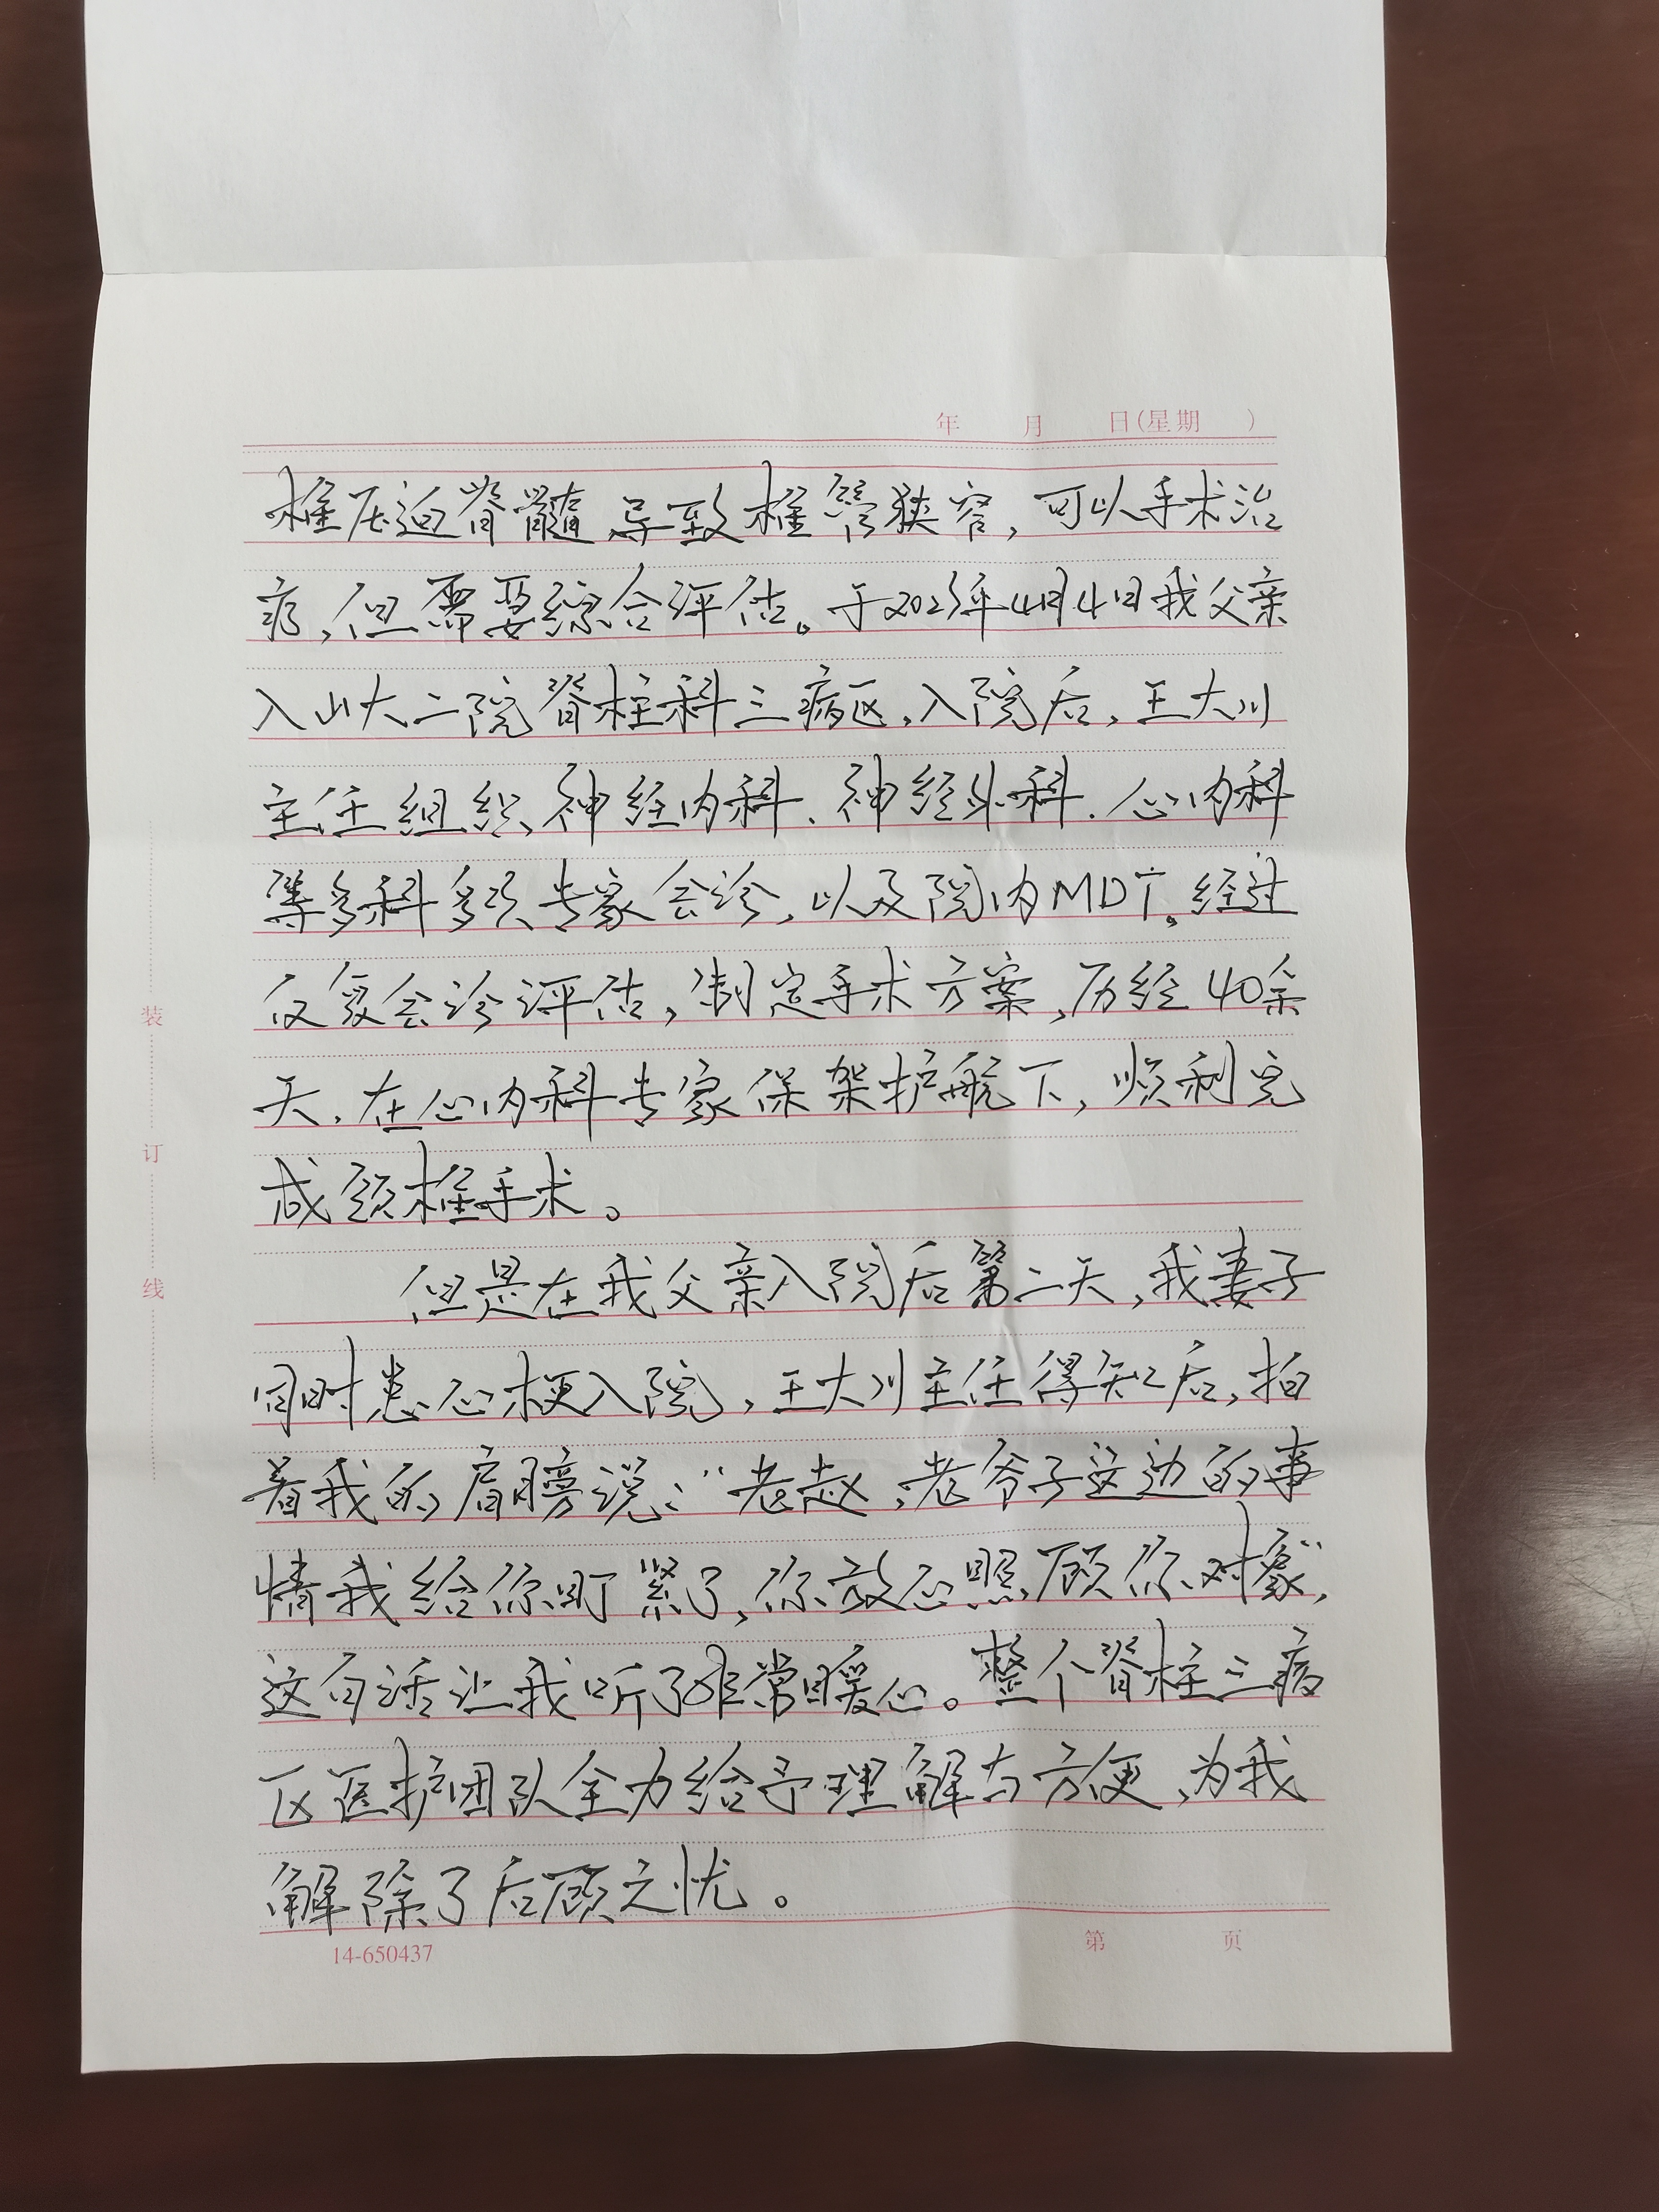 年 月 日(星期 )
椎压迫脊髓导致椎管狭窄,可以手术治
疗,但需要综合评估。于2023年4月4日我父亲
入山大二院脊柱科三病区,入院后,王大川
主任组织神经内科、神经外科、心内科
等多科多次专家会诊,以及院内MDT。经过
反复会诊评估,制定手术方案,历经40余
天,在心内科专家保架护航下,顺利完
成颈椎手术。
但是在我父亲入院后第二天,我妻子
同时患心梗入院,王大川主任得知后,拍
着我的肩膀说:“老赵,老爷子这边的事
情我给你盯紧了,你放心照顾你对象”,
这句话让我听了非常暖心。整个脊柱三病
区医护团队全力给予理解与方便,为我
解除了后顾之忧。
14-650437 第 页
装
订
线